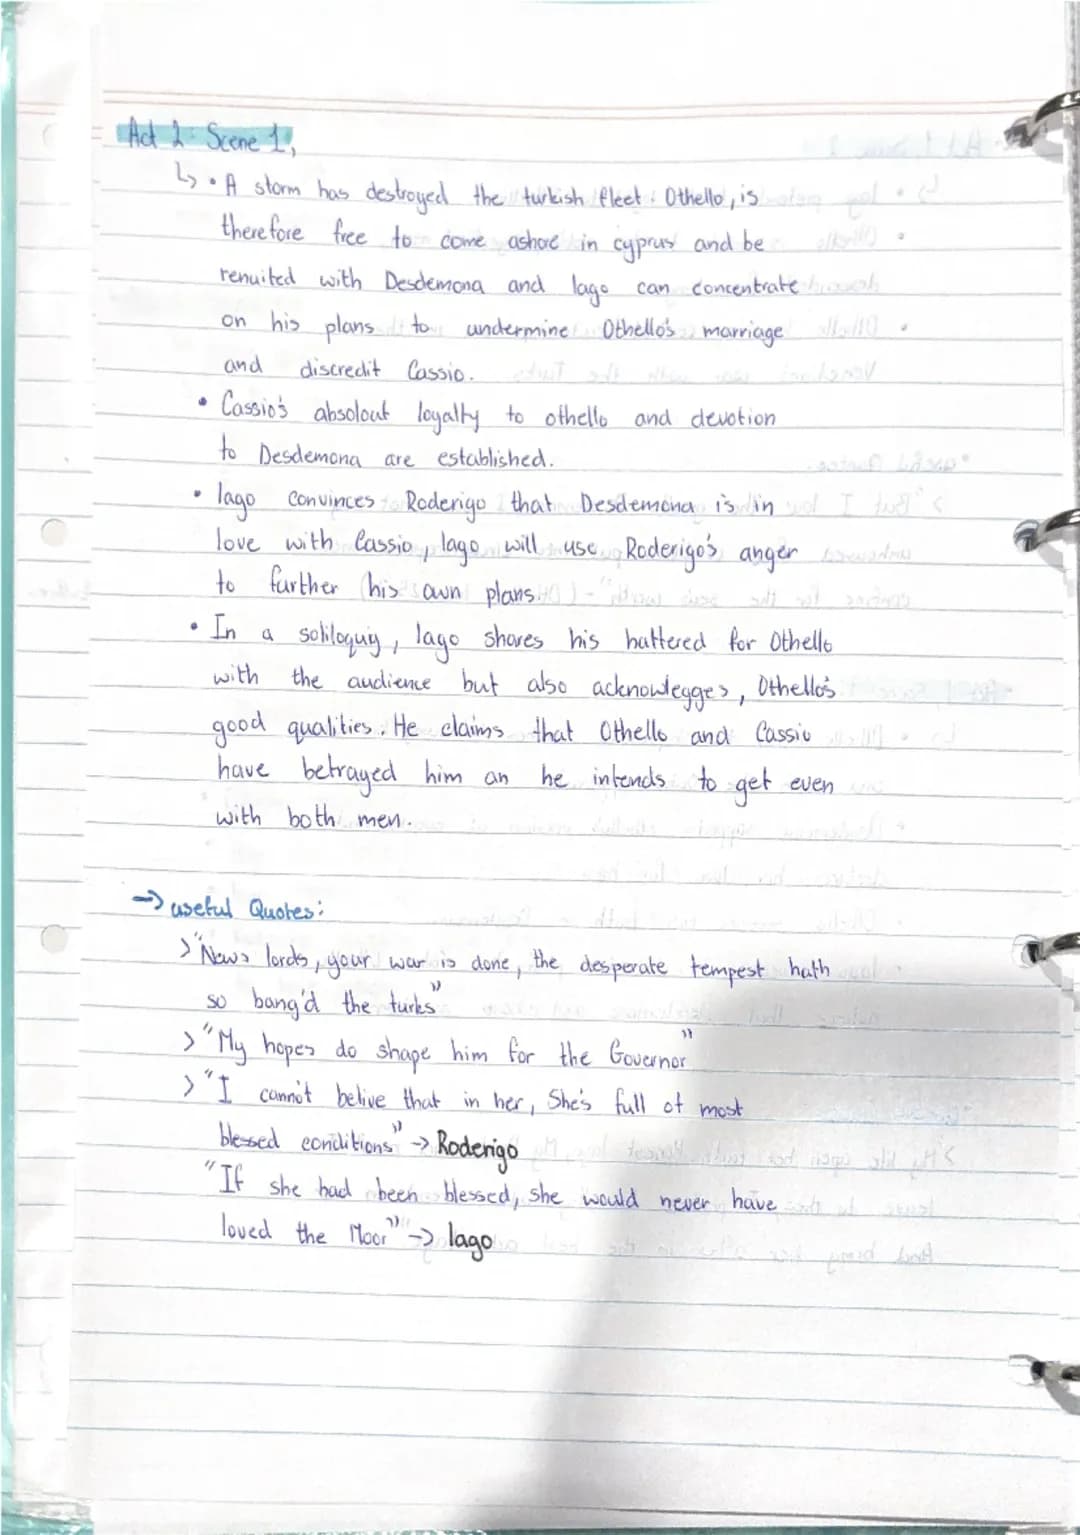 Act 2: Scene 1,
↳ • A storm has destroyed the turkish fleet. Othello, is
therefore free to come ashore in cyprus and be
renuited with Desdemona and Iago can concentrate
on his plans to undermine Othello's marriage
and discredit Cassio.
• Cassio's absolout loyalty to othello and devotion
to Desdemona are established.
• Iago convinces Roderigo that Desdemona is in
love with Cassio, Iago will use Roderigo's anger
to further his own plans.
• In a soliloquiy, Iago shares his hattered for Othello
with the audience but also acknowlegges, Othello's
good qualities. He claims that Othello and Cassio
have betrayed him an he intends to get even
with both men.
→ useful Quotes:
> "News lords, your war is done, the desperate tempest hath
so bang'd the turks"
> "My hopes do shape him for the Governor"
> "I cannot belive that in her, She's full of most
blessed conditions" → Roderigo
"If she had been blessed, she would never have
loved the Moor" → Iago